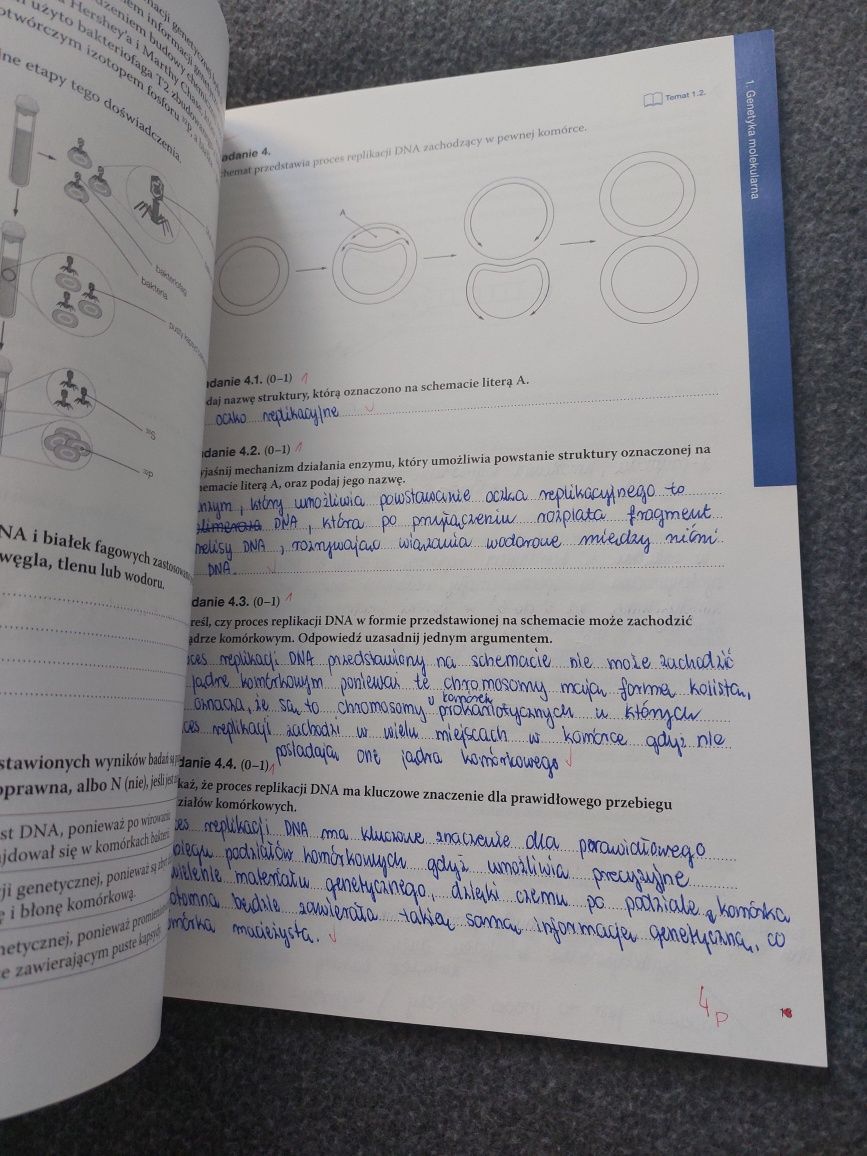 Hershey'a i Marthy Chase
użyto bakteriofaga T2
izotopem fosforu
etapy tego doświadczenia.
bakteriofag
bakteria
³⁵S
³²P
NA i białek fagowych
węgla, tlenu lub wodoru.
stawionych wyników badań
oprawna, albo N (nie), jeśli jest
st DNA, ponieważ po wirowaniu
jdował się w komórkach bakterii
ji genetycznej, ponieważ są
ę i błonę komórkową.
netycznej, ponieważ
e zawierającym puste kapsydy.
Temat 1.2.
1. Genetyka molekularna
adanie 4.
chemat przedstawia proces replikacji DNA zachodzący w pewnej komórce.
A
adanie 4.1. (0–1) 1
daj nazwę struktury, którą oznaczono na schemacie literą A.
oczko replikacyjne
adanie 4.2. (0–1) 1
yjaśnij mechanizm działania enzymu, który umożliwia powstanie struktury oznaczonej na
hemacie literą A, oraz podaj jego nazwę.
nzym, który umożliwia powstawanie oczka replikacyjnego to
olimeraza DNA, która po przyłączeniu rozplata fragment
helisy DNA, rozrywając wiązania wodorowe między nićmi
DNA.
danie 4.3. (0–1) 1
reśl, czy proces replikacji DNA w formie przedstawionej na schemacie może zachodzić
ądrze komórkowym. Odpowiedź uzasadnij jednym argumentem.
ces replikacji DNA przedstawiony na schemacie nie może zachodzić
jądrze komórkowym ponieważ te chromosomy mają formę kolistą,
oznacza, że są to chromosomy u komórek prokariotycznych u których
ces replikacji zachodzi w wielu miejscach w komórce gdyż nie
posiadają one jądra komórkowego
danie 4.4. (0–1) 1
każ, że proces replikacji DNA ma kluczowe znaczenie dla prawidłowego przebiegu
ziałów komórkowych.
ces replikacji DNA ma kluczowe znaczenie dla prawidłowego
biegu podziałów komórkowych gdyż umożliwia precyzyjne
wielenie materiału genetycznego, dzięki czemu po podziale komórka
otomna będzie zawierała taką samą informację genetyczną, co
omórka macierzysta.
4p